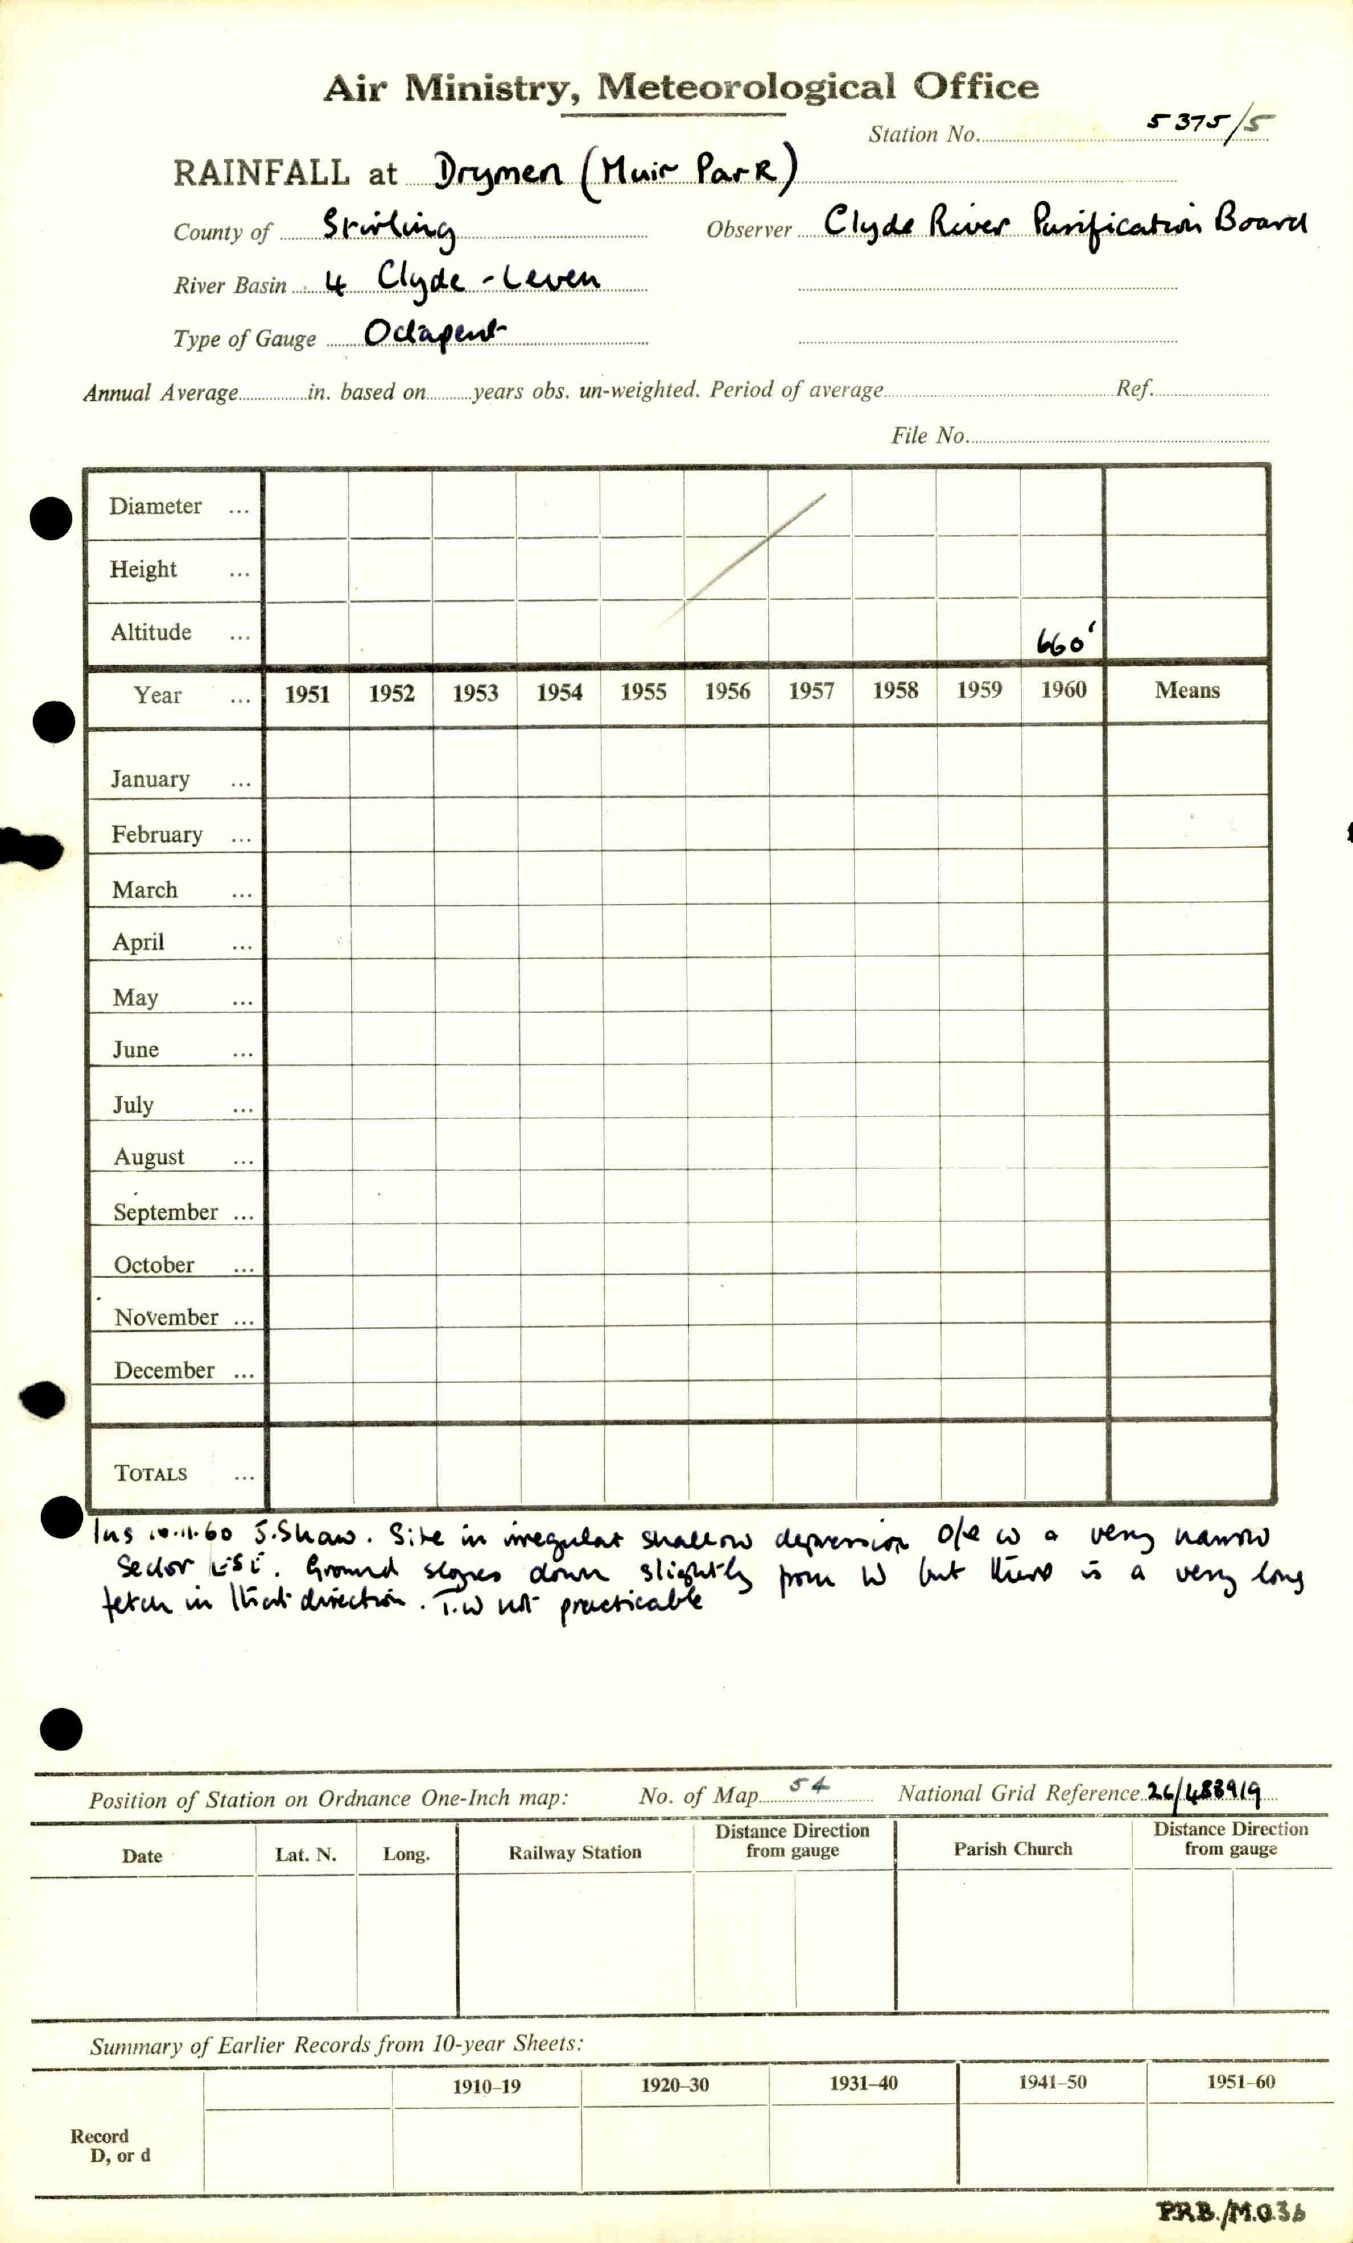 Air Ministry, Meteorological Office
Station No. 5375/5
RAINFALL at Drymen (Muir Park)
County of Stirling Observer Clyde River Purification Board
River Basin 4 Clyde - Leven
Type of Gauge Octapent
Annual Average in. based on years obs. un-weighted. Period of average Ref.
File No.
Diameter ...
Height ...
Altitude ... 660'
Year ... 1951 1952 1953 1954 1955 1956 1957 1958 1959 1960 Means
January ...
February ...
March ...
April ...
May ...
June ...
July ...
August ...
September ...
October ...
November ...
December ...
TOTALS ...
Ins 10.11.60 J. Shaw. Site in irregular shallow depression O/e w a very narrow
Sector ESE. Ground slopes down slightly from W but there is a very long
fetch in that direction. T.W not practicable
Position of Station on Ordnance One-Inch map: No. of Map 54 National Grid Reference 26/483919
Date Lat. N. Long. Railway Station Distance Direction from gauge Parish Church Distance Direction from gauge
Summary of Earlier Records from 10-year Sheets:
1910–19 1920–30 1931–40 1941–50 1951–60
Record
D, or d
P.R.B./M.O.3b